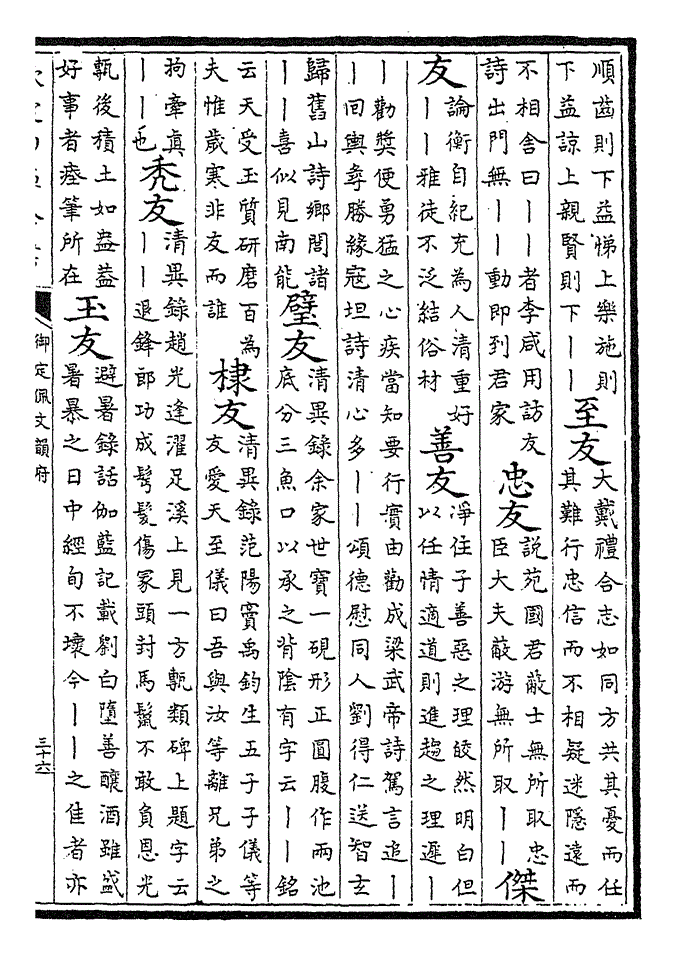 順齒則下益悌上樂施則下益諒上親賢則下丨丨 至友 大戴禮合志如同方共其憂而任其難行忠信而不相疑迷隱遠而
不相舍曰丨丨者李咸用訪友詩出門無丨丨動即到君家 忠友 說苑國君蔽士無所取忠臣大夫蔽游無所取丨丨 傑
友 論衡自紀充為人清重好丨丨雅徒不泛結俗材 善友 淨住子善惡之理皎然明白但以任情適道則進趨之理遲丨
丨勸獎便勇猛之心疾當知要行實由勸成梁武帝詩駕言追丨丨回輿尋勝緣寇坦詩清心多丨丨頌德慰同人劉得仁送智玄
歸舊山詩鄉閭諸丨丨喜似見南能 璧友 清異錄余家世寶一硯形正圓腹作兩池底分三魚口以承之背陰有字云丨丨銘
云天受玉質研磨百為夫惟歲寒非友而誰 棣友 清異錄范陽竇禹鈞生五子子儀等友愛天至儀曰吾與汝等離兄弟之
拘牽真丨丨也 秃友 清異錄趙光逢濯足溪上見一方甎類碑上題字云丨丨退鋒郎功成鬂髮傷冢頭封馬鬛不敢負恩光
甎後積土如盎盎好事者瘞筆所在 玉友 避暑錄話伽藍記載劉白墮善釀酒雖盛暑暴之日中經旬不壞今丨丨之佳者亦
御定佩文韻府
三十六